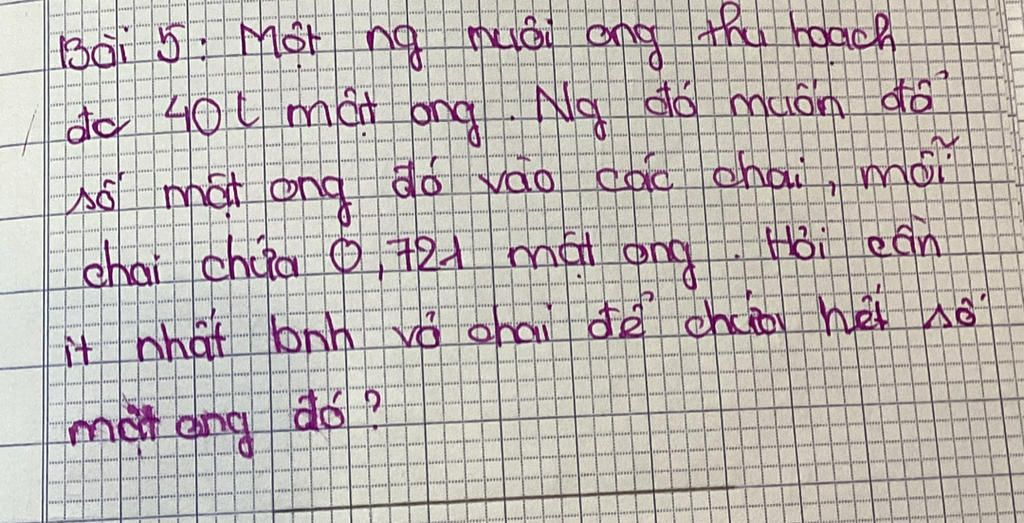 Bài 5: Một ng nuôi ong thu hoạch
đc 40l mật ong. Ng đó muốn đổ
số mật ong đó vào các chai, mỗi
chai chứa 0,72l mật ong. Hỏi cần
ít nhất bnh vỏ chai để chứa hết số
mật ong đó?